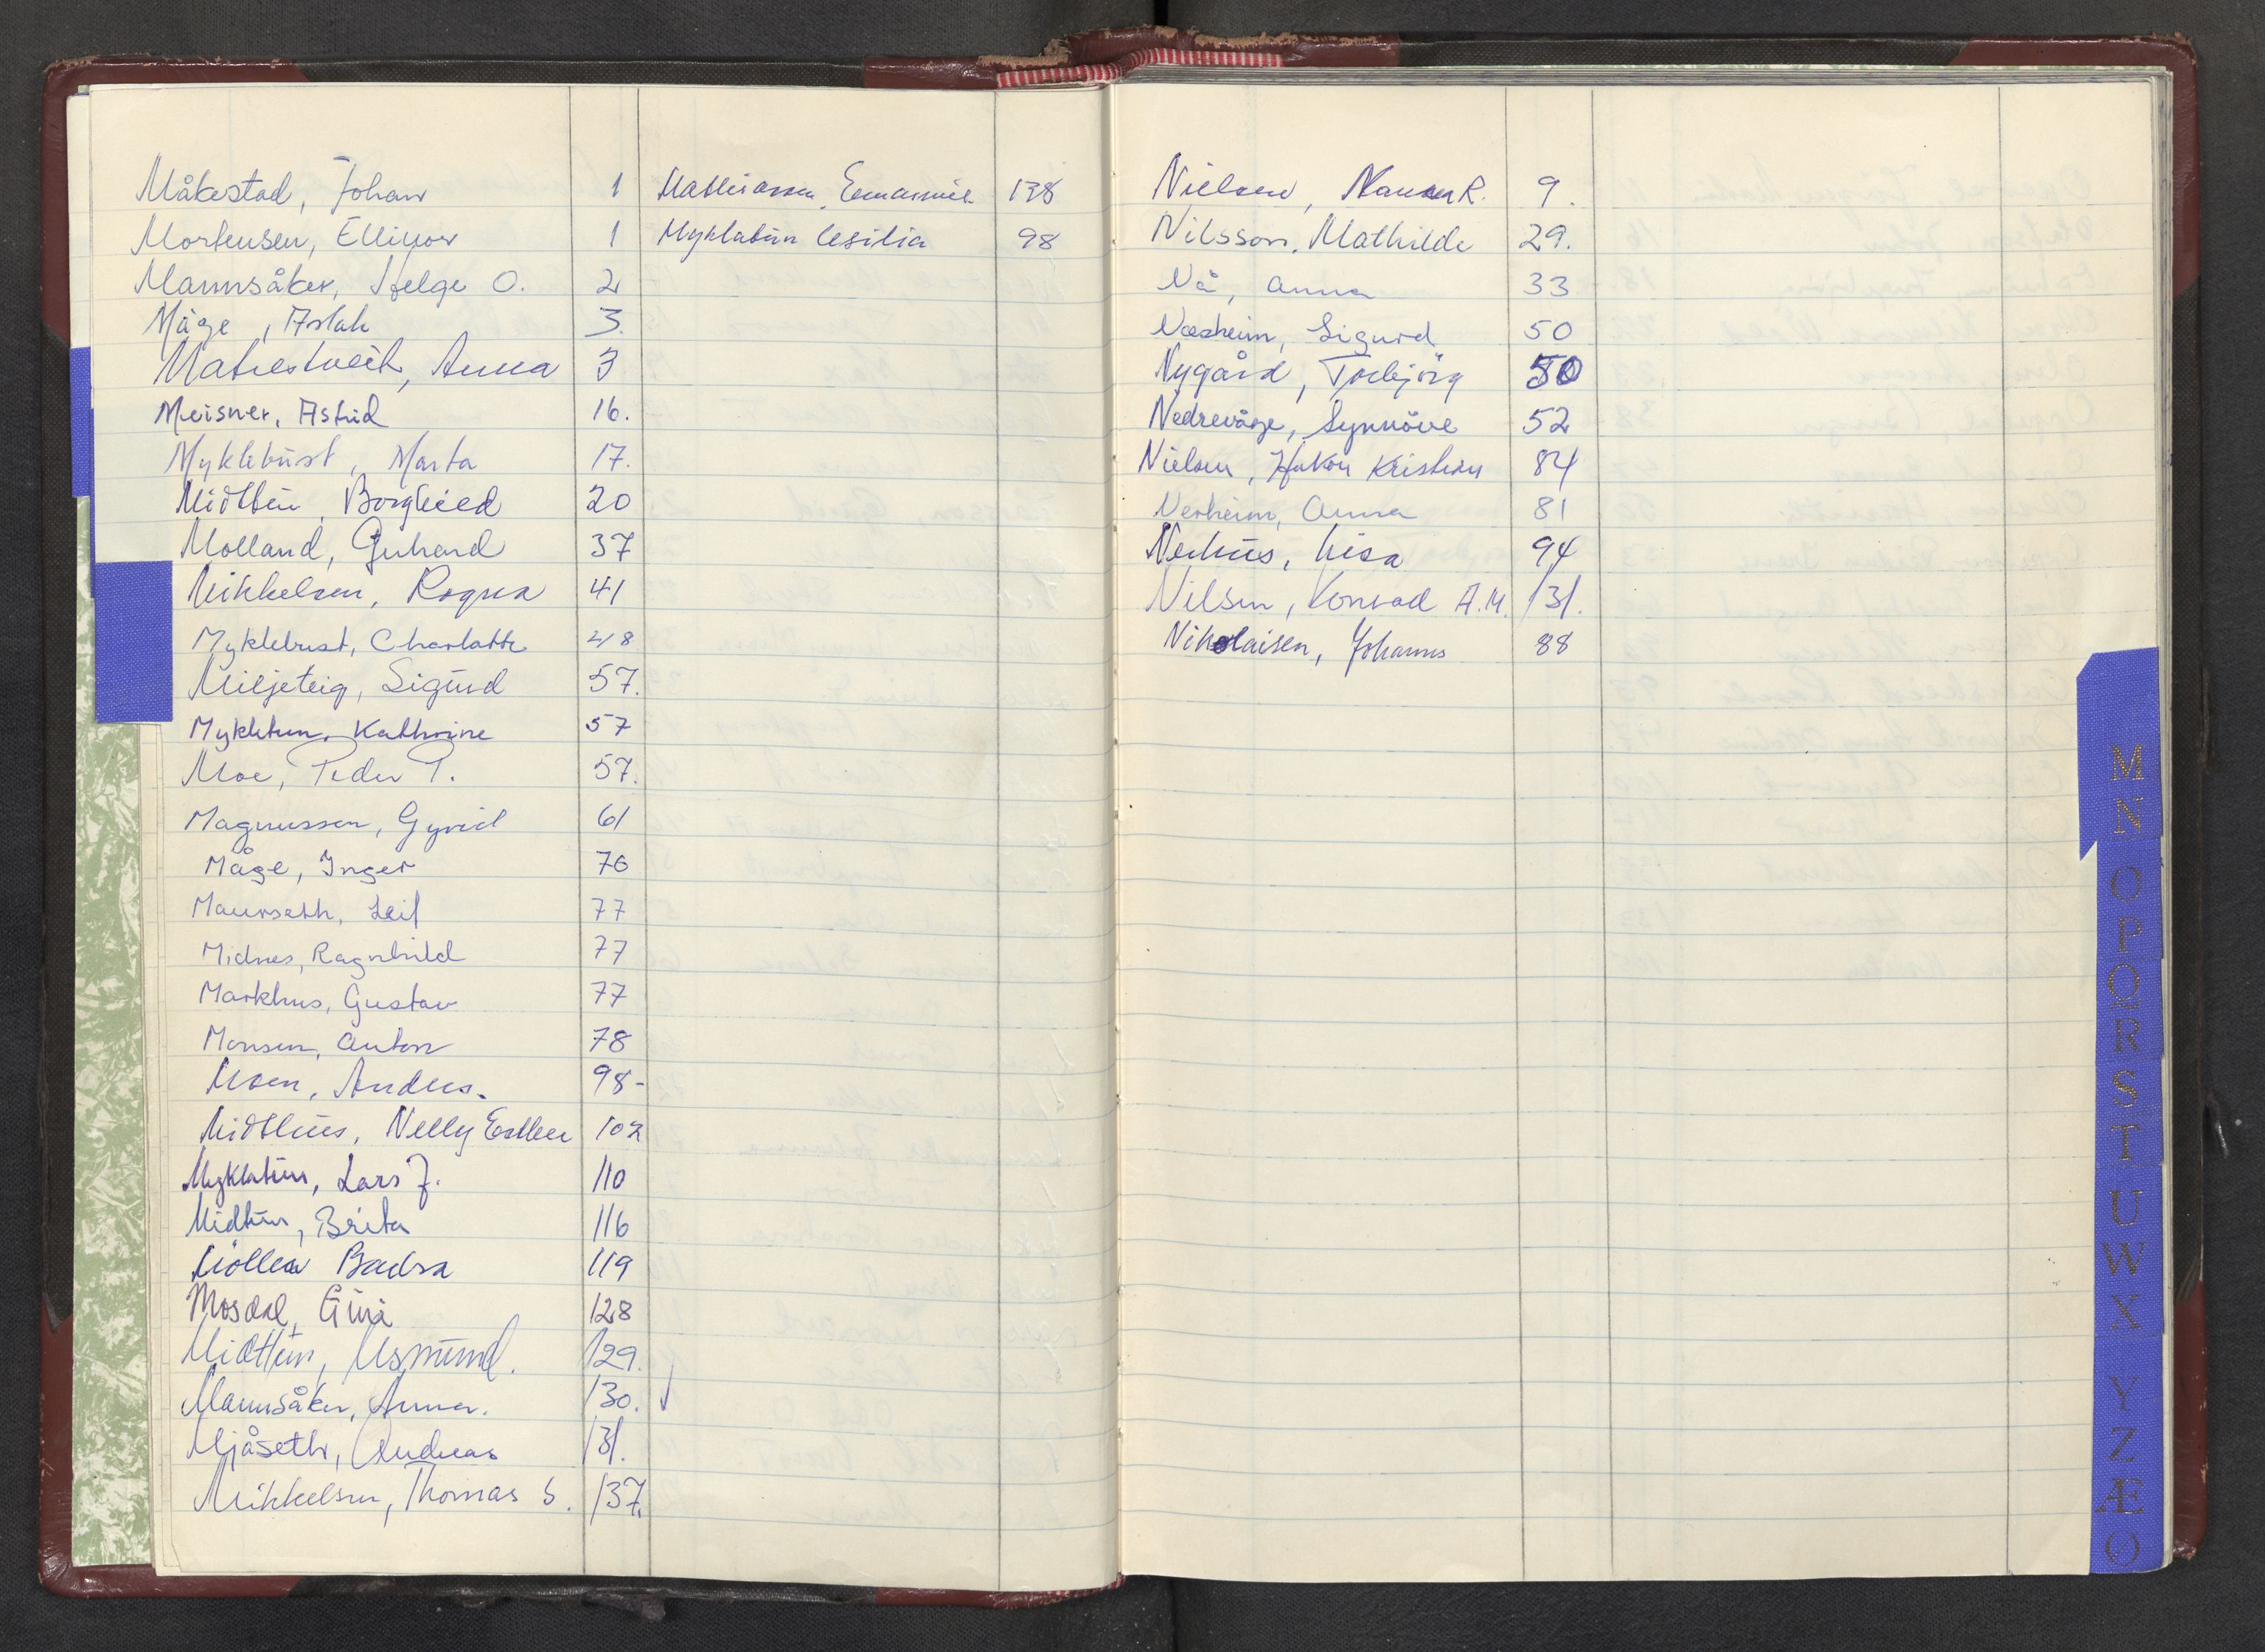 Måkestad, Johan 1
Mortensen, Ellinor 1
Mannsåker, Helge O. 2
Måge, Aslak 3.
Matrestveit, Anna 3
Meisner, Astrid 16.
Myklebust, Marta 17.
Midttun, Borghild 20
Molland, Gerhard 37
Mikkelsen, Ragna 41
Myklebust, Charlotte 48
Miljeteig, Sigurd 57.
Mykletun, Kathrine 57
Moe, Peder P. 57.
Magnussen, Gyrid 61
Måge, Inger 76
Maurseth, Leif 77
Midnes, Ragnhild 77
Markhus, Gustav 77
Monsen, Anton 78
Moen, Anders. 98-
Midthus, Nelly Esther 102
Myklatun, Lars J. 110
Midtun, Brita 116
Möller 119
Mosdal, Gina 128
Midttun, Asmund. 129.
Mannsåker, Anna. 130.
Mjåseth, Andreas 131.
Mikkelsen, Thomas S. 137.
Mathiassen, Emanuel 138
Myklatun Cesilia 98
Nielsen, R. 9.
Nilsson, Mathilde 29.
Nå, Anna 33
Næsheim, Sigurd 50
Nygård, Torbjörg 50
Nedrevåge, Synnöve 52
Nielsen, Håkon Kristian 84
Nesheim, Anna 81
Nerhus, Lisa 94
Nilsen, Konrad A.M. 131.
Nikolaisen, Johannes 88
M
N
O
P
Q
R
S
T
U
W
X
Y
Z
Æ
O